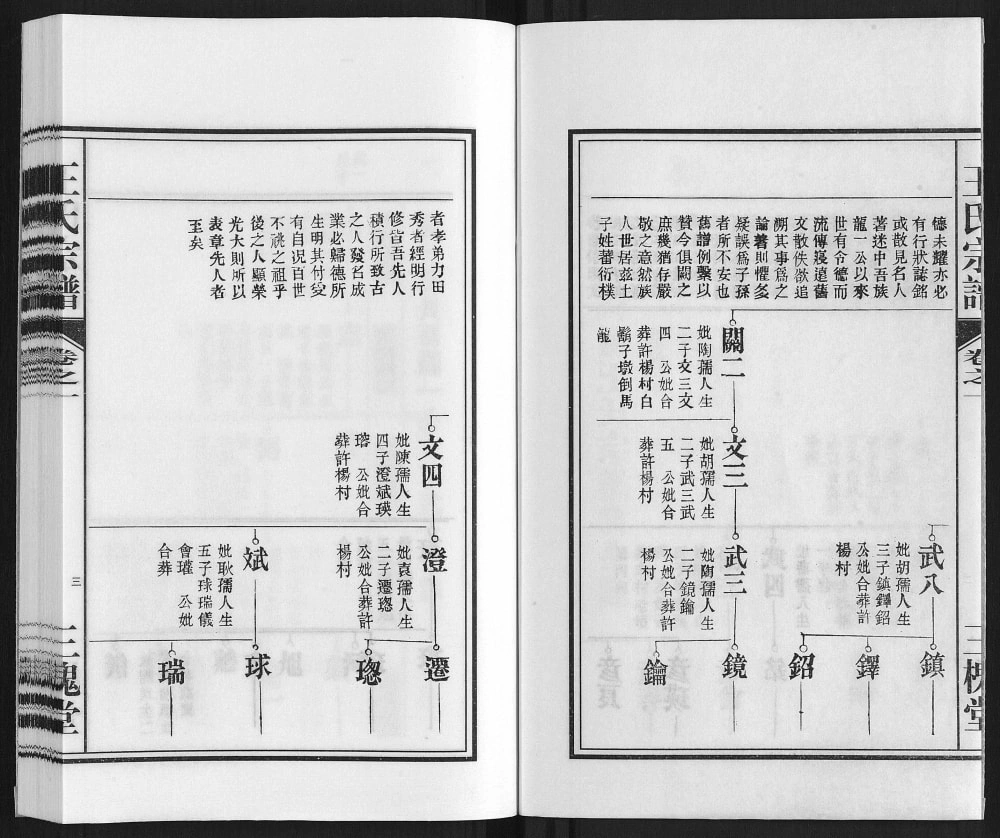 德未耀亦必
有行狀誌銘
或散見名人
著迷中吾族
龍一公以來
世有令德而
流傳寖遠舊
文散佚欲追
溯其事爲之
論著則懼多
疑誤爲子孫
者所不安也
舊譜例繫以
贊今俱闕之
庶幾猶存嚴
敬之意然族
人世居茲土
子姓蕃衍樸
關二
妣陶孺人生
二子文三文
四 公妣合
葬許楊村白
鬍子墩倒馬
龍
文三
妣胡孺人生
二子武三武
五 公妣合
葬許楊村
武八
妣胡孺人生
三子鎮鐸鉊
公妣合葬許
楊村
武三
妣陶孺人生
二子鏡鑰
公妣合葬許
楊村
鎮
鐸
鉊
鏡
鑰
王氏宗譜
卷之一
三槐堂
者孝弟力田
秀者經明行
修皆吾先人
積行所致古
之人發名成
業必歸德所
生明其付受
有自況百世
不祧之祖乎
後之人顯榮
光大則所以
表章先人者
至矣
文四
妣陳孺人生
四子澄斌瑛
瑢 公妣合
葬許楊村
澄
妣袁孺人生
二子遷璁
公妣合葬許
楊村
斌
妣耿孺人生
五子球瑞儀
會瓘 公妣
合葬
遷
璁
球
瑞
王氏宗譜
卷之一
三
三槐堂